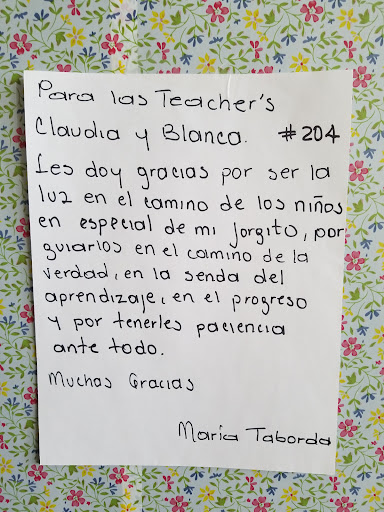 Para las Teacher's
Claudia y Blanca. #204
Les doy gracias por ser la
luz en el camino de los niños
en especial de mi Jorgito, por
guiarlos en el camino de la
verdad, en la senda del
aprendizaje, en el progreso
y por tenerles paciencia
ante todo.
Muchas Gracias
María Taborda